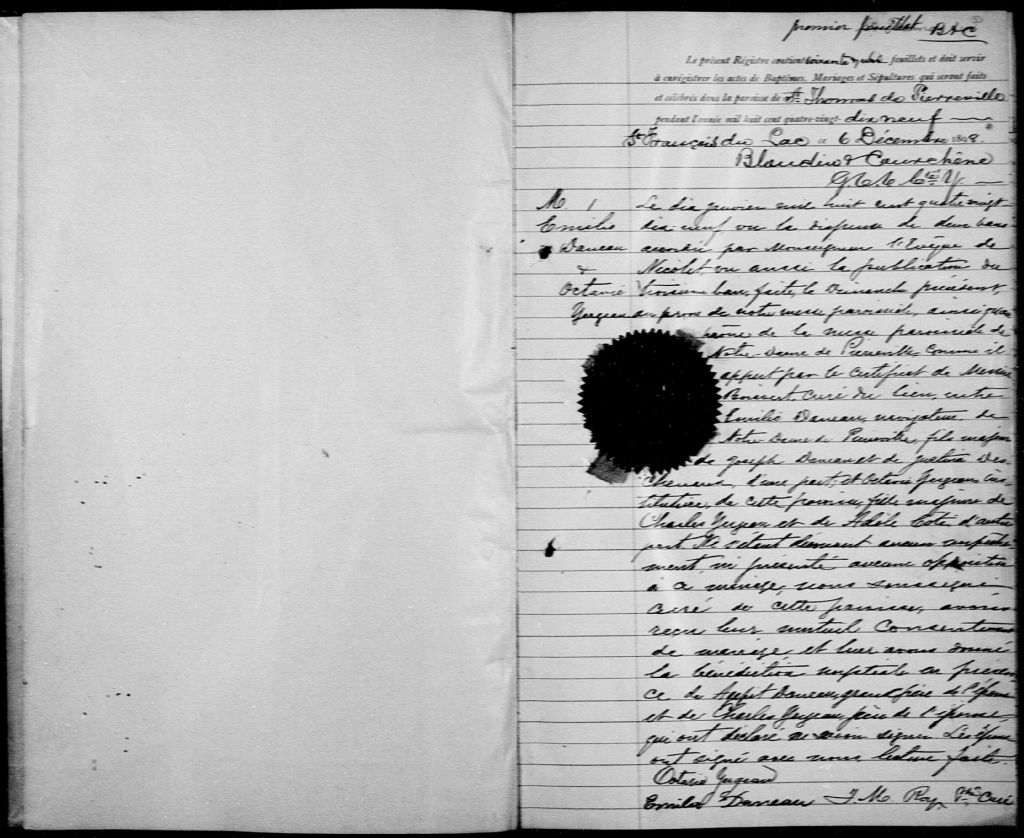 premier feuillet B & C
Le présent Régistre contient soixante & huit feuillets et doit servir
à enrégistrer les actes de Baptêmes, Mariages et Sépultures qui seront faits
et célébrés dans la paroisse de St. Thomas de Pierreville
pendant l'année mil huit cent quatre-vingt- dix neuf
St François du Lac ce 6 Décembre 1898.
Blondin & Courchêne
M. 1
Emilio
Daneau
&
Octavie
Gugeau
Le dix janvier mil huit cent quatre vingt
dix neuf vu la dispense de deux bans
accordée par Monseigneur l'Evêque de
Nicolet, vu aussi la publication du
troisième ban, faite, le Dimanche précédent,
au prône de notre messe paroissiale, ainsi qu'au
prône de la messe paroissiale de
Notre-Dame de Pierreville comme il
appert par le certificat de Messire
Boisvert, curé du lieu, entre
Emilio Daneau, navigateur de
Notre Dame de Pierreville, fils majeur
de Joseph Daneau et de Justine Des-
cheneaux, d'une part; et Octavie Gugeau, ins-
titutrice, de cette paroisse, fille majeure de
Charles Gugeau et de Adèle Coté d'autre
part. Ne s'étant découvert aucun empêche-
ment, ni présenté aucune opposition
à ce mariage, nous soussigné
curé de cette paroisse, avons
reçu leur mutuel consentement
de mariage, et leur avons donné
la bénédiction nuptiale en présen-
ce de Daneau, grand père de l'époux
et de Charles Gugeau, père de l'épouse,
qui ont déclaré ne savoir signer. Les époux
ont signé avec nous lecture faite.
Octavie Gugeau
Emilio Daneau J. M. Roy, Ptre Curé